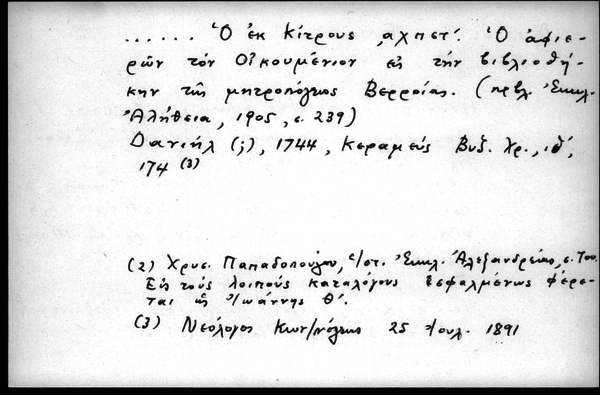 ...... Ὁ ἐκ Κίτρους ,αχπετ΄. Ὁ ἀφιε-
ρῶν τόν Οἰκουμένιον εἰς τήν βιβλιοθή-
κην τῆς μητροπόλεως Βερροίας. (πρβλ. Ἐκκλ.
Ἀλήθεια, 1905, σ. 239)
Δανιήλ (;), 1744, Κεραμεύς Βυζ. Χρ., ιθ΄,
174 (3)
(2) Χρυσ. Παπαδοπούλου, Ἱστ. Ἐκκλ. Ἀλεξανδρείας, σ.
Εἰς τούς λοιπούς καταλόγους ἐσφαλμένως φέρε-
ται ὡς Ἰωάννης Θ΄.
(3) Νεόλογος Κων/πόλεως 25 Ἰουλ. 1891